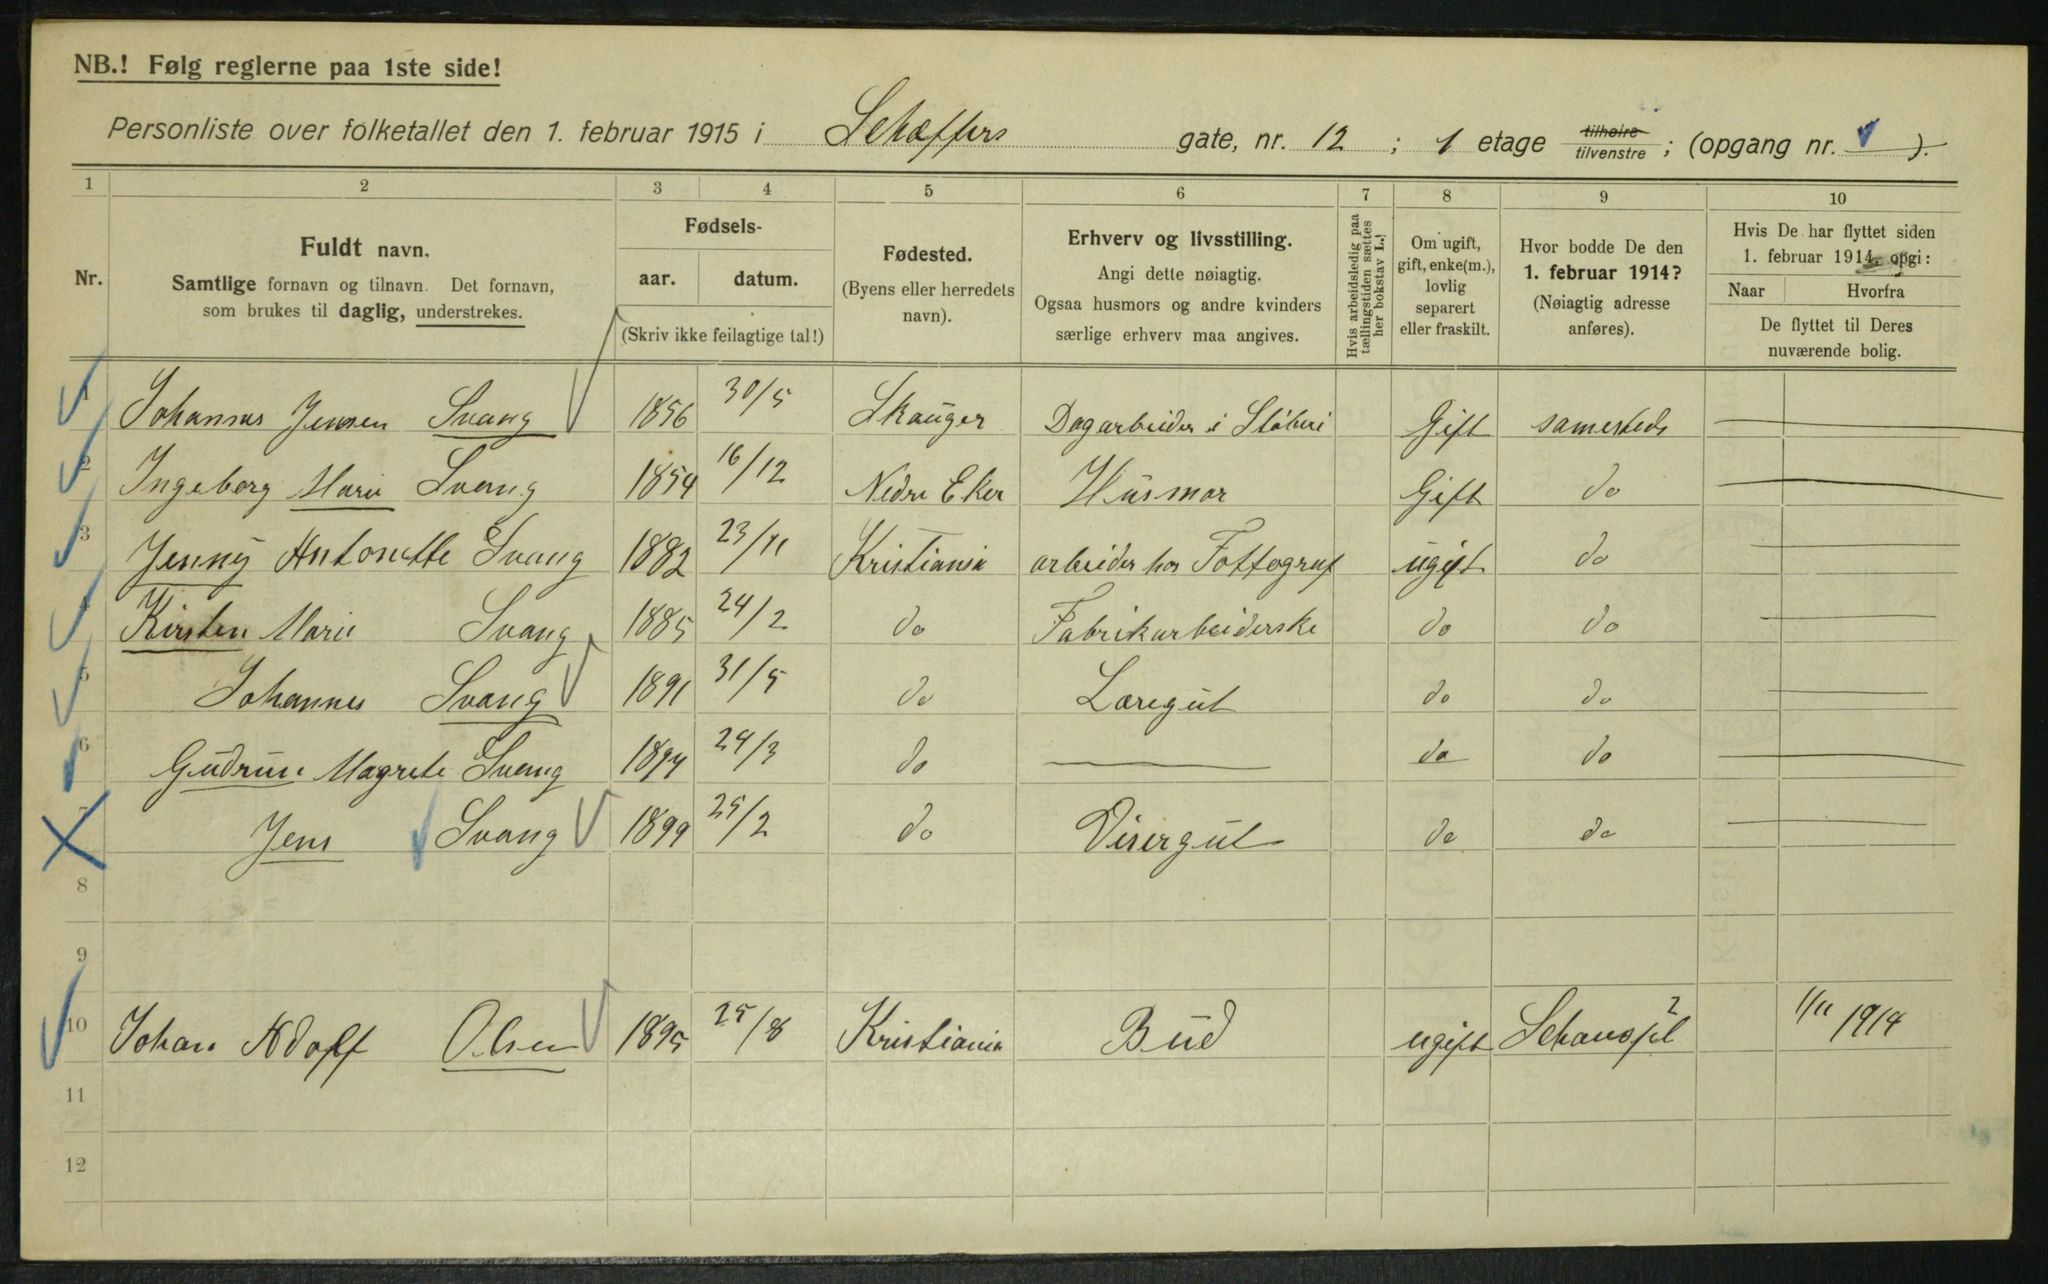 NB.! Følg reglerne paa 1ste side!
Personliste over folketallet den 1. februar 1915 i Schæffers gate, nr. 12 ; 1 etage tilhøire tilvenstre ; (opgang nr. ).
1 2 3 4 5 6 7 8 9 10
Nr.
Fuldt navn.
Samtlige fornavn og tilnavn. Det fornavn,
som brukes til daglig, understrekes.
Fødsels-
aar. datum.
(Skriv ikke feilagtige tal!)
Fødested.
(Byens eller herredets
navn).
Erhverv og livsstilling.
Angi dette nøiagtig.
Ogsaa husmors og andre kvinders
særlige erhverv maa angives.
Hvis arbeidsledig paa
tællingstiden sættes
her bokstav L.!
Om ugift,
gift, enke(m.),
lovlig
separert
eller fraskilt.
Hvor bodde De den
1. februar 1914?
(Nøiagtig adresse
anføres).
Hvis De har flyttet siden
1. februar 1914, opgi:
Naar Hvorfra
De flyttet til Deres
nuværende bolig.
1 Johannes Jensen Svang 1856 30/5 Skauger Dagarbeider i Støberi Gift samesteds
2 Ingeborg Marie Svang 1854 16/12 Nedre Eker Husmor Gift do
3 Jenny Antonette Svang 1882 23/11 Kristiania arbeider hos Fottograf ugift do
4 Kirsten Marie Svang 1885 24/2 do Fabrikarbeiderske do do
5 Johannes Svang 1891 31/5 do Læregut do do
6 Gudrun Magrete Svang 1894 24/3 do do do
7 Jens Svang 1899 25/2 do Visergut do do
8
9
10 Johan Adolf Olsen 1895 25/8 Kristiania Bud ugift 1/11 1914
11
12